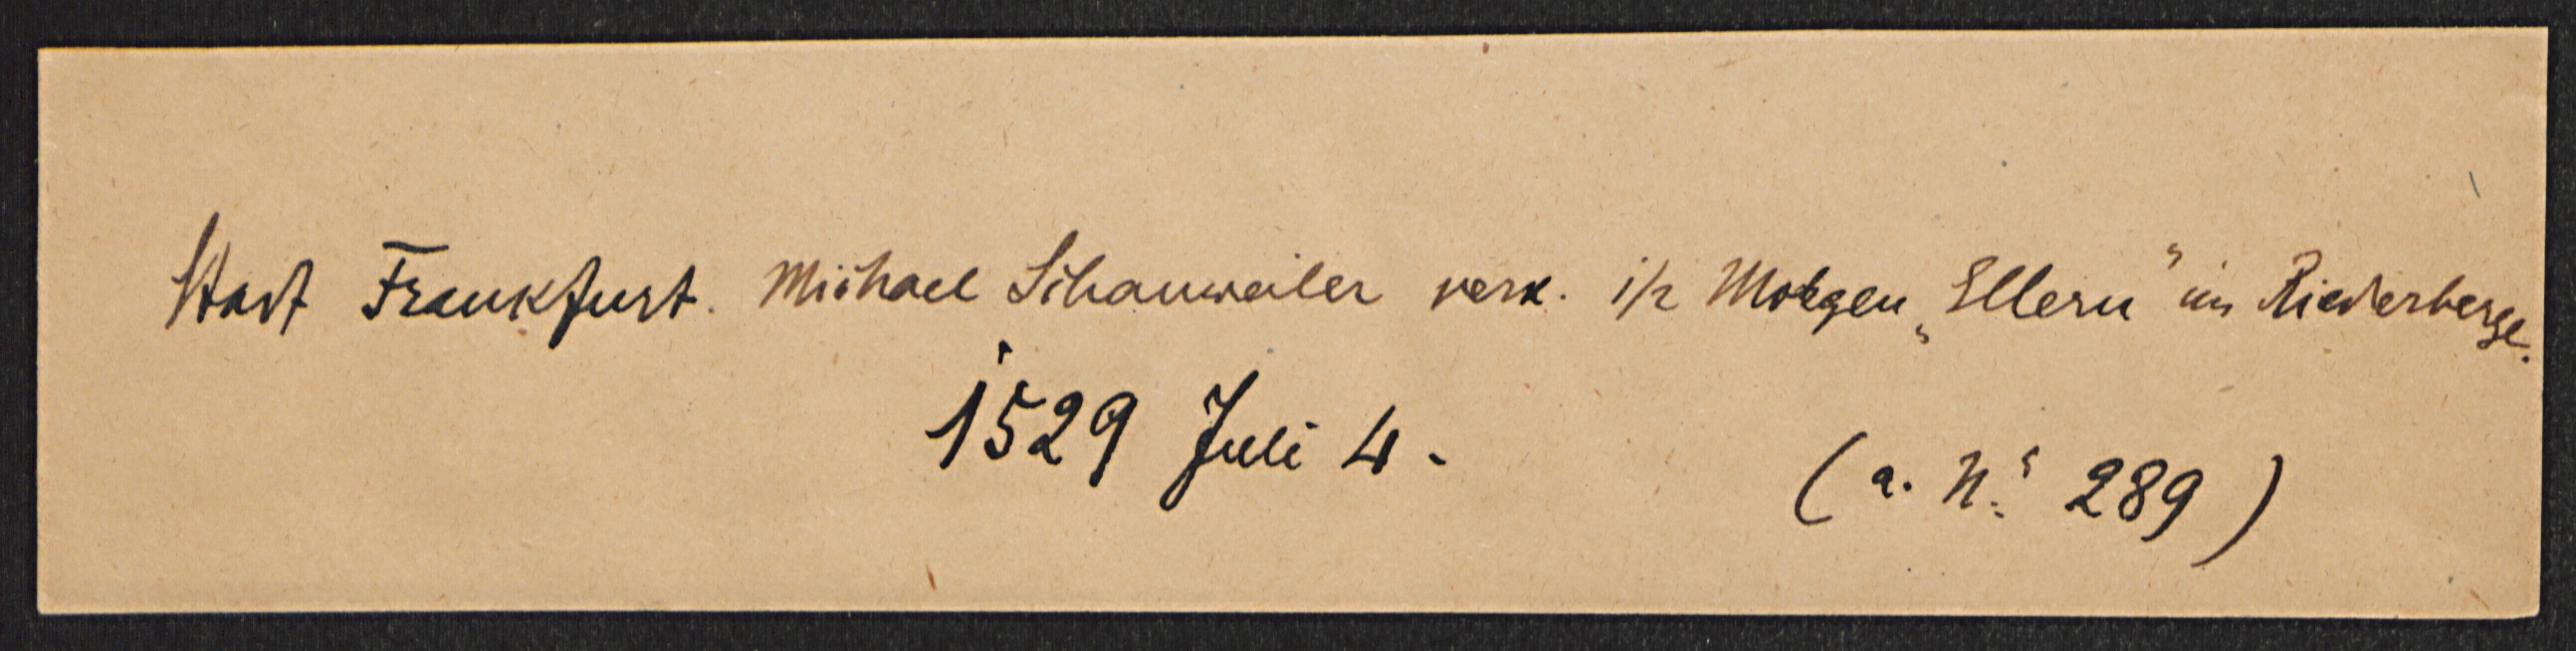 Stadt Frankfurt. Michael Schanweiler verk. 1/2 Morgen „Ellern“ im Riederberge.
1529 Juli 4.
(a. N. 289)